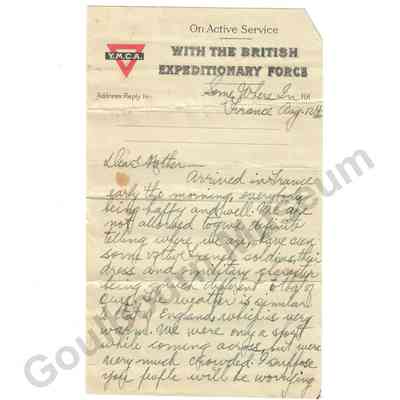 On Active Service
WITH THE BRITISH
EXPEDITIONARY FORCE
Y.M.C.A.
Address Reply to:
Some Where In
France Aug. 12th
Dear Mother
Arrived in France
early the morning, everybody
being happy and well. We are
not allowed to give definite
telling where we are, have seen
some French soldiers, their
dress and military
being much different to of
ours. The weather is similar
to that of England, which is very
warm. We were only a short
while coming across, but were
very much crowded. I suppose
your people will be worrying
Goulburn Museum